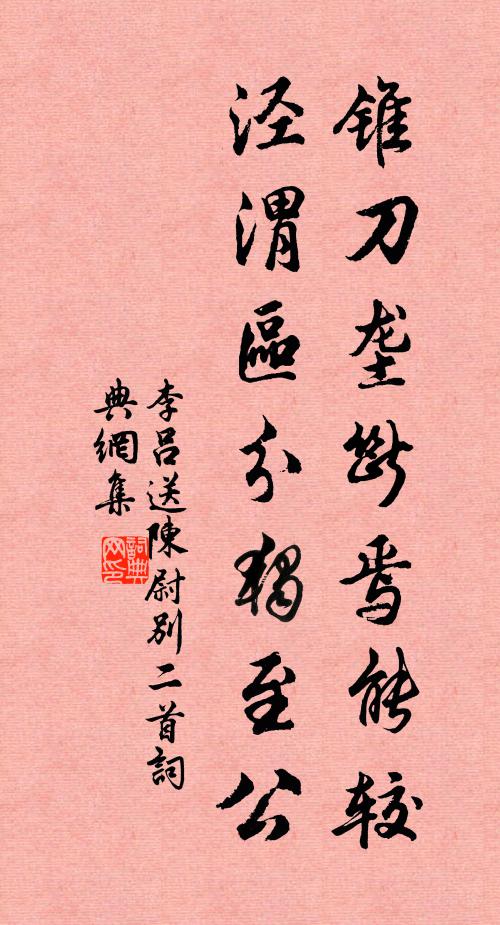 锥刀垄断焉能较
泾渭區分獨至公
李呂送陳尉别二首詞
典網集
詞典
网印